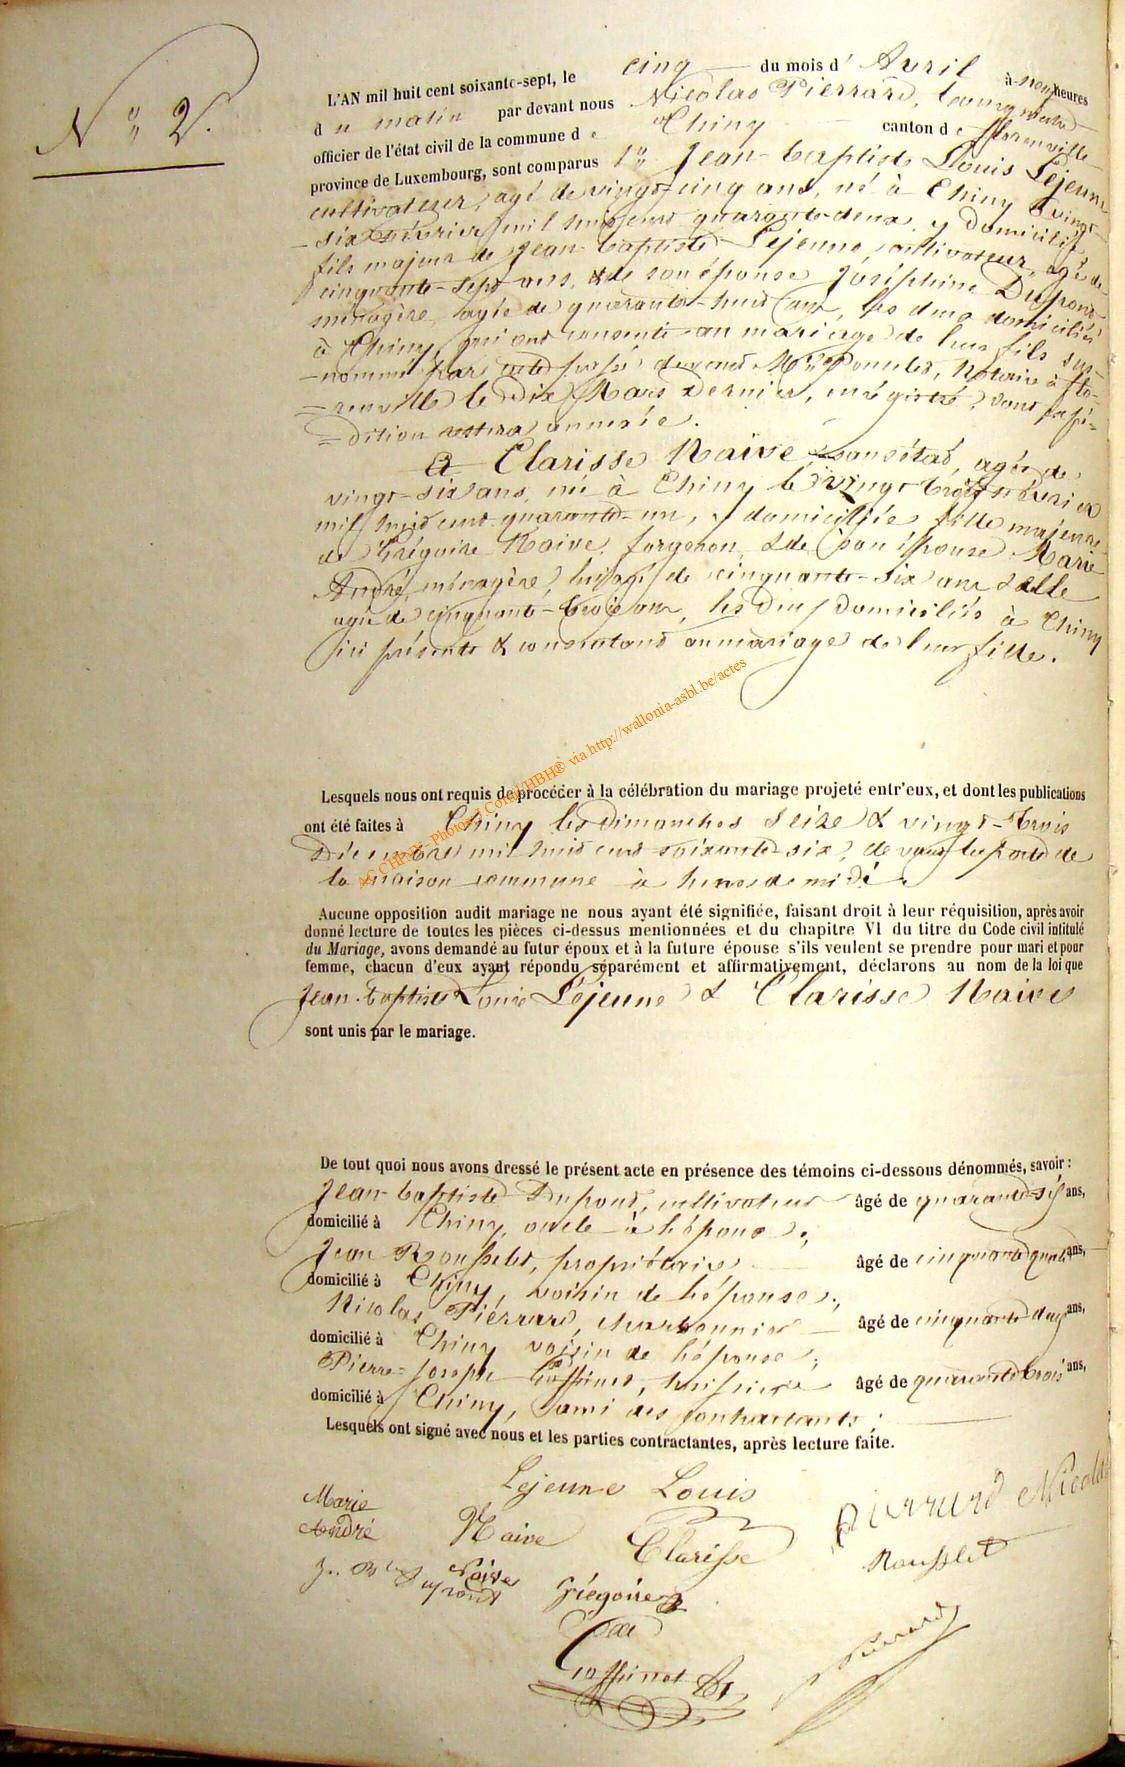 N° 2.
L'AN mil huit cent soixante-sept, le cinq du mois d' Avril à neuf heures
du matin par devant nous Nicolas Pierrard, bourgmestre
officier de l'état civil de la commune de Chiny canton de Florenville
province de Luxembourg, sont comparus 1° Jean-baptiste Louis Lejeune
cultivateur, agé de vingt-cinq ans, né à Chiny le vingt-
six février mil huit cent quarante-deux, y domicilié,
fils majeur de Jean-baptiste Lejeune, cultivateur, agé de
cinquante-sept ans, & de son épouse Joséphine Dupont
ménagère, agée de quarante-huit ans, les deux domiciliés
à Chiny, qui ont consenti au mariage de leur fils sus-
nommé par acte passé devant Me Poncelet, Notaire à Flo-
renville le dix Mars dernier, enrégistré, dont l'expé-
dition restera annexée.
& Clarisse Naive sans état, agée de
vingt-six ans, née à Chiny le vingt trois février
mil huit cent quarante-un, y domiciliée, fille majeure
de Grégoire Naive, forgeron, & de son épouse Marie
André, ménagère, lui agé de cinquante-six ans & elle
agée de cinquante-trois ans, les deux domiciliés à Chiny
ici présents & consentant au mariage de leur fille.
Lesquels nous ont requis de procéder à la célébration du mariage projeté entr'eux, et dont les publications
ont été faites à Chiny les dimanches seize & vingt-trois
Décembre mil huit cent soixante-six, devant la porte de
la maison commune à heures de midi.
Aucune opposition audit mariage ne nous ayant été signifiée, faisant droit à leur réquisition, après avoir
donné lecture de toutes les pièces ci-dessus mentionnées et du chapitre VI du titre du Code civil intitulé
du Mariage, avons demandé au futur époux et à la future épouse s'ils veulent se prendre pour mari et pour
femme, chacun d'eux ayant répondu séparément et affirmativement, déclarons au nom de la loi que
Jean-baptiste Louis Lejeune & Clarisse Naive
sont unis par le mariage.
De tout quoi nous avons dressé le présent acte en présence des témoins ci-dessous dénommés, savoir :
Jean-baptiste Dupont, cultivateur âgé de quarante six ans,
domicilié à Chiny, oncle à l'époux ;
Jean Rousselet, propriétaire âgé de cinquante quatre ans,
domicilié à Chiny, voisin de l'épouse ;
Nicolas Piérrard, charbonnier âgé de cinquante deux ans,
domicilié à Chiny voisin de l'épouse ;
Pierre-Joseph Goffinet, huissier âgé de quarante trois ans,
domicilié à Chiny, ami des contractants ;
Lesquels ont signé avec nous et les parties contractantes, après lecture faite.
Lejeune Louis
Marie
André
Naive Clarisse
Pierrard Nicolas
Rousslet
J. Bte Dupont
Naive Grégoire
Goffinet
Pierrard
AC CHINY - Photos J.Cornil/HBH® via http://wallonia-asbl.be/actes